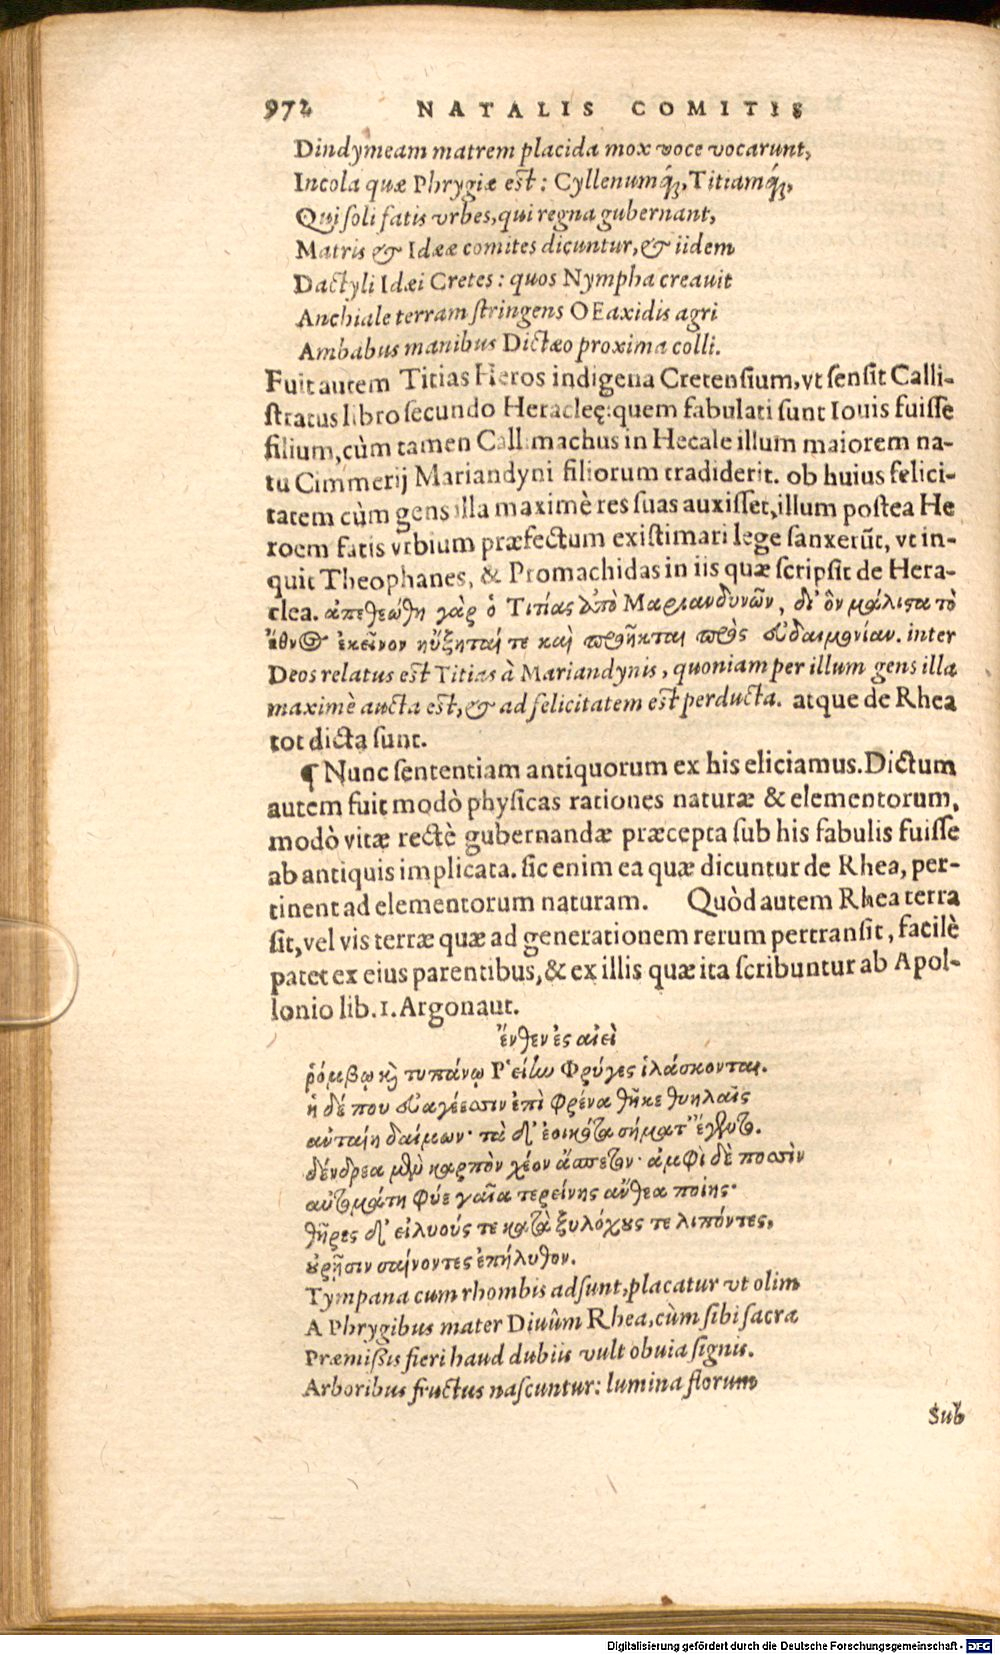 972 NATALIS COMITIS
Dindymeam matrem placida mox voce vocarunt,
Incola quæ Phrygiæ est: Cyllenumq́;, Titiamq́;,
Qui soli fatis vrbes, qui regna gubernant,
Matris & Idææ comites dicuntur, & iidem
Dactyli Idæi Cretes: quos Nympha creauit
Anchiale terram stringens OEaxidis agri
Ambabus manibus Dictæo proxima colli.
Fuit autem Titias Heros indigena Cretensium, vt sensit Calli-
stratus libro secundo Heracleę: quem fabulati sunt Iouis fuisse
filium, cùm tamen Callimachus in Hecale illum maiorem na-
tu Cimmerij Mariandyni filiorum tradiderit. ob huius felici-
tatem cùm gens illa maximè res suas auxisset, illum postea He
roem fatis vrbium præfectum existimari lege sanxerũt, vt in-
quit Theophanes, & Promachidas in iis quæ scripsit de Hera-
clea. ἀπεθεώθη γὰρ ὁ Τιτίας ἀπὸ Μαριανδυνῶν, δι' ὃν μάλιστα τὸ
ἔθνος ἐκεῖνον ηὔξηταί τε καὶ προῆκται πρὸς εὐδαιμονίαν. inter
Deos relatus est Titias à Mariandynis, quoniam per illum gens illa
maximè aucta est, & ad felicitatem est perducta. atque de Rhea
tot dicta sunt.
¶ Nunc sententiam antiquorum ex his eliciamus. Dictum
autem fuit modò physicas rationes naturæ & elementorum,
modò vitæ rectè gubernandæ præcepta sub his fabulis fuisse
ab antiquis implicata. sic enim ea quæ dicuntur de Rhea, per-
tinent ad elementorum naturam. Quòd autem Rhea terra
sit, vel vis terræ quæ ad generationem rerum pertransit, facilè
patet ex eius parentibus, & ex illis quæ ita scribuntur ab Apol-
lonio lib. 1. Argonaut.
ἔνθεν ἐς αἰεὶ
ῥόμβῳ καὶ τυπάνῳ Ῥείην Φρύγες ἱλάσκονται.
ἡ δέ που εὐαγέεσσιν ἐπὶ φρένα θῆκε θυηλαῖς
ἀνταίη δαίμων· τὰ δ' ἐοικότα σήματ' ἔγεντο.
δένδρεα μὲν καρπὸν χέον ἄσπετον· ἀμφὶ δὲ ποσσὶν
αὐτομάτη φύε γαῖα τερείνης ἄνθεα ποίης·
θῆρες δ' εἰλυούς τε κατὰ ξυλόχους τε λιπόντες,
οὐρῇσιν σαίνοντες ἐπήλυθον.
Tympana cum rhombis adsunt, placatur vt olim
A Phrygibus mater Diuûm Rhea, cùm sibi sacra
Præmißis fieri haud dubiis vult obuia signis.
Arboribus fructus nascuntur: lumina florum
Sub
Digitalisierung gefördert durch die Deutsche Forschungsgemeinschaft - DFG